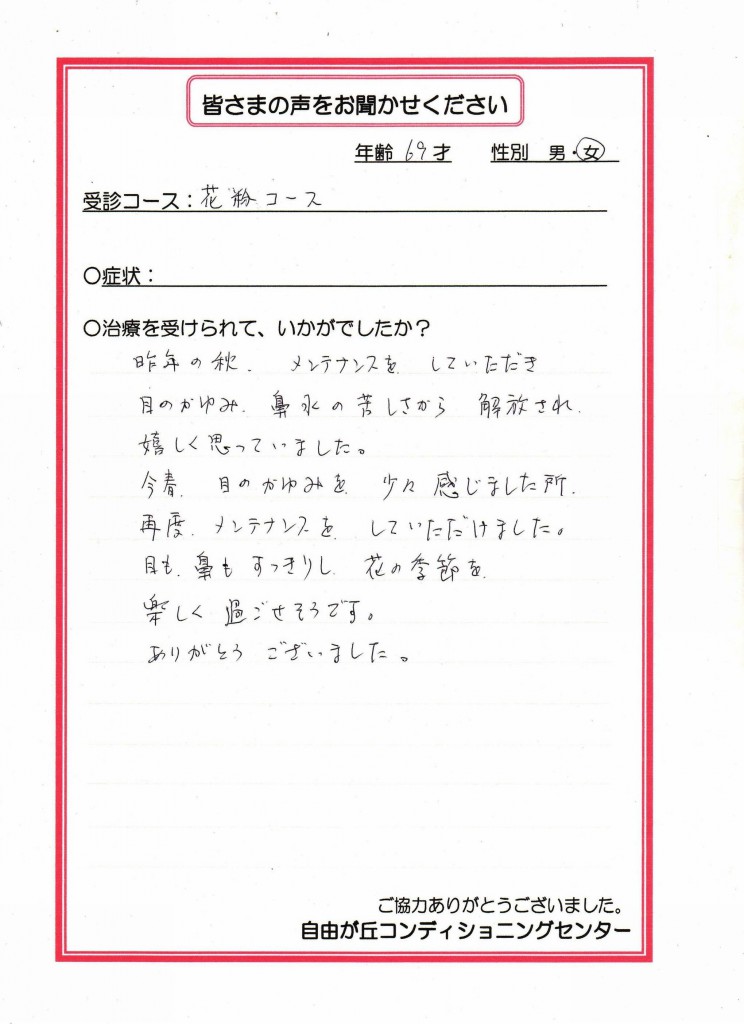 皆さまの声をお聞かせください
年齢 69才 性別 男・女
受診コース：花粉コース
〇症状：
〇治療を受けられて、いかがでしたか？
昨年の秋、メンテナンスを していただき
目のかゆみ、鼻水の苦しさから 解放され、
嬉しく思っていました。
今春、目のかゆみを 少々感じました所、
再度、メンテナンスを していただけました。
目も、鼻もすっきりし、花の季節を
楽しく過ごせそうです。
ありがとうございました。
ご協力ありがとうございました。
自由が丘コンディショニングセンター